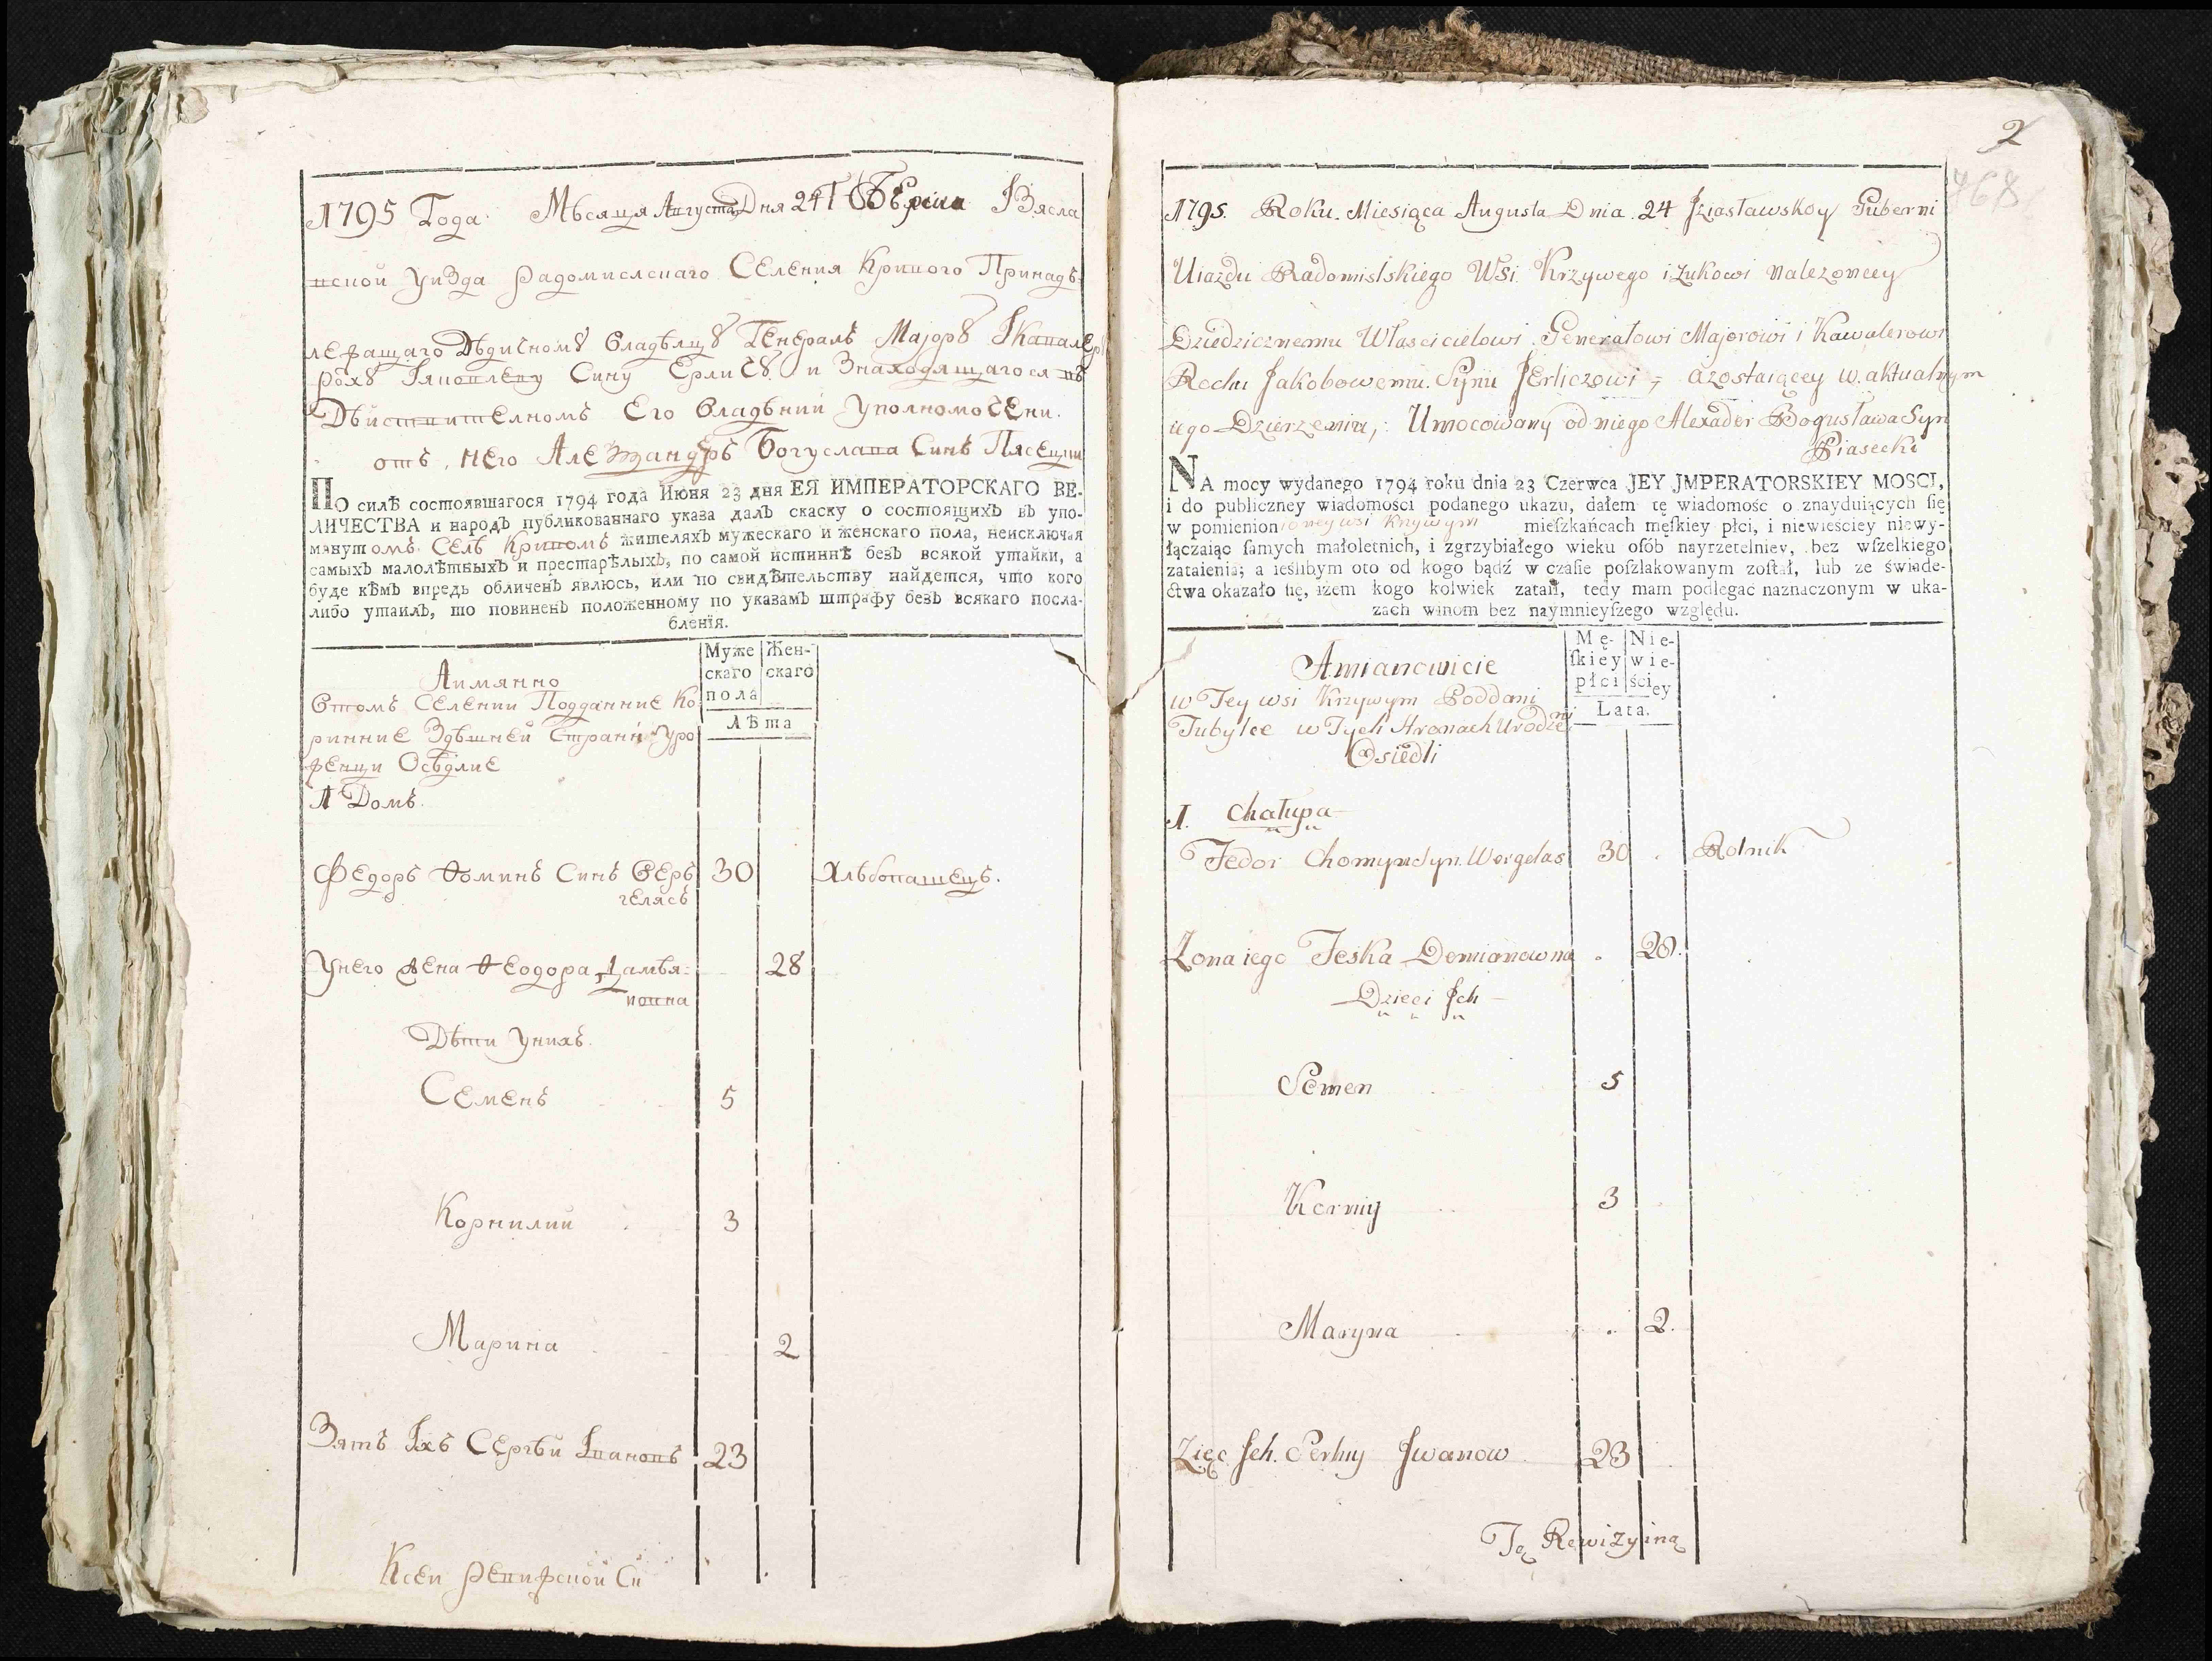 1795 Года Мѣсяца Августа Дня 24 Губернии Iзясла
вской Уизда Радомислскаго Селения Кривого Принадъ-
лежащаго Дѣдичному Владѣлцу Генералъ Маjору I Кавалер
Роху Яковлеву Сину Ерличу и Знаходящагося въ
Дѣйствителномъ Его Владѣнии Уполномочени
отъ него Алеѯандръ Богуслава Синъ Пясецки
По силѣ состоявшагося 1794 года Июня 23 дня ЕЯ ИМПЕРАТОРСКАГО ВЕ-
ЛИЧЕСТВА и народъ публикованнаго указа далъ скаску о состоящихъ въ упо-
мянутомъ Селѣ Кривомъ жителяхъ мужескаго и женскаго пола, неисключая
самыхъ малолѣтныхъ и престарѣлыхъ, по самой истиннѣ безъ всякой утайки, а
буде кѣмъ впредь обличенъ явлюсь, или по свидѣтельству найдется, что кого
либо утаилъ, то повиненъ положенному по указамъ штрафу безъ всякаго посла-
бленія.
Муже Жен-
скаго скаго
пола
Лѣта
Аимянно
Втомъ Селении Подданние Ко
ринние Здѣшней Страни Уро
женци Осѣдлие
1 Домъ.
Федоръ Ѳоминъ Синъ Вер 30 Хлѣбопашецъ.
гелясъ
Унего Жена Ѳеодора Дамья- 28
новна
Дѣти Унихъ.
Семенъ 5
Корнилий 3
Марина 2
Зятъ Iхъ Сергѣй Iвановъ 23
Ксей Ревижской Ск
2
768
1795. Roku. Miesiąca Augusta Dnia. 24 Jziasławskoy Guberni
Uiazdu Radomislskiego Wsi Krzywego i Zukowi Nalezoncey
Dziedzicznemu Włascicielowi. Generałowi Majorowi i Kawalerowi
Rochu Jakobowemu. Synu Jerliczowi, azostaiącey w. aktualnym
iego Dzierzeniu,. Umocowany od niego Alexader Bogusława Syn
Piasecki
NA mocy wydanego 1794 roku dnia 23 Czerwca JEY JMPERATORSKIEY MOSCI,
i do publiczney wiadomości podanego ukazu, dałem tę wiadomośc o znayduiących się
w pomienioney wsi Krzywym mieſzkańcach męſkiey płci, i niewieściey niewy-
łączaiąc ſamych małoletnich, i zgrzybiałego wieku oſób nayrzetelniey, bez wſzelkiego
zataienia; a ieślibym oto od kogo bądź w czaſie poſzlakowanym zoſtał, lub ze świade-
ctwa okazało ſię, iżem kogo kolwiek zataił, tedy mam podlegać naznaczonym w uka-
zach winom bez naymnieyſzego względu.
Mę- Nie-
ſkiey wie-
płci ściey
Lata.
Amianowicie
w Tey wsi Krzywym Poddani
Tubylce w Tych Stronach Urodzeni
Osiedli
1. Chałupa
Fedor Chomyn Syn. Wergelas 30 . Rolnik
Zona iego Feska Demianowna . 28.
Dzieci Jch
Semen 5
Korniy 3
Maryna . 2.
Zięc Jch. Serhiy Jwanow 23
Tę Rewizyiną